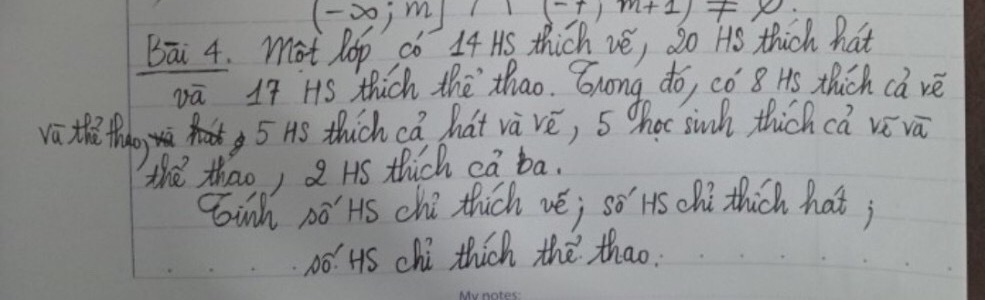 (-∞; m] ∩ (-7; m+1) ≠ ∅.
Bài 4. Một lớp có 14 HS thích vẽ, 20 HS thích hát
và 17 HS thích thể thao. Trong đó, có 8 HS thích cả vẽ
và thể thao, và hát, 5 HS thích cả hát và vẽ, 5 học sinh thích cả vẽ và
thể thao, 2 HS thích cả ba.
Tính số HS chỉ thích vẽ; số HS chỉ thích hát;
số HS chỉ thích thể thao.
My notes: